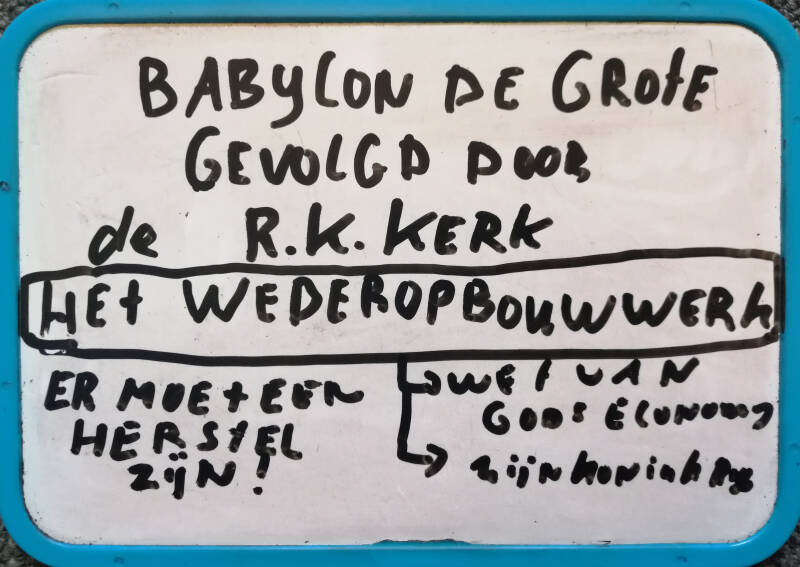 BABYLON DE GROTE
GEVOLGD DOOR
de R.K. KERK
HET WEDEROPBOUWWERK
ER MOET EEN
HERSTEL
ZIJN!
WET VAN
GODS ECONOMY
zijn